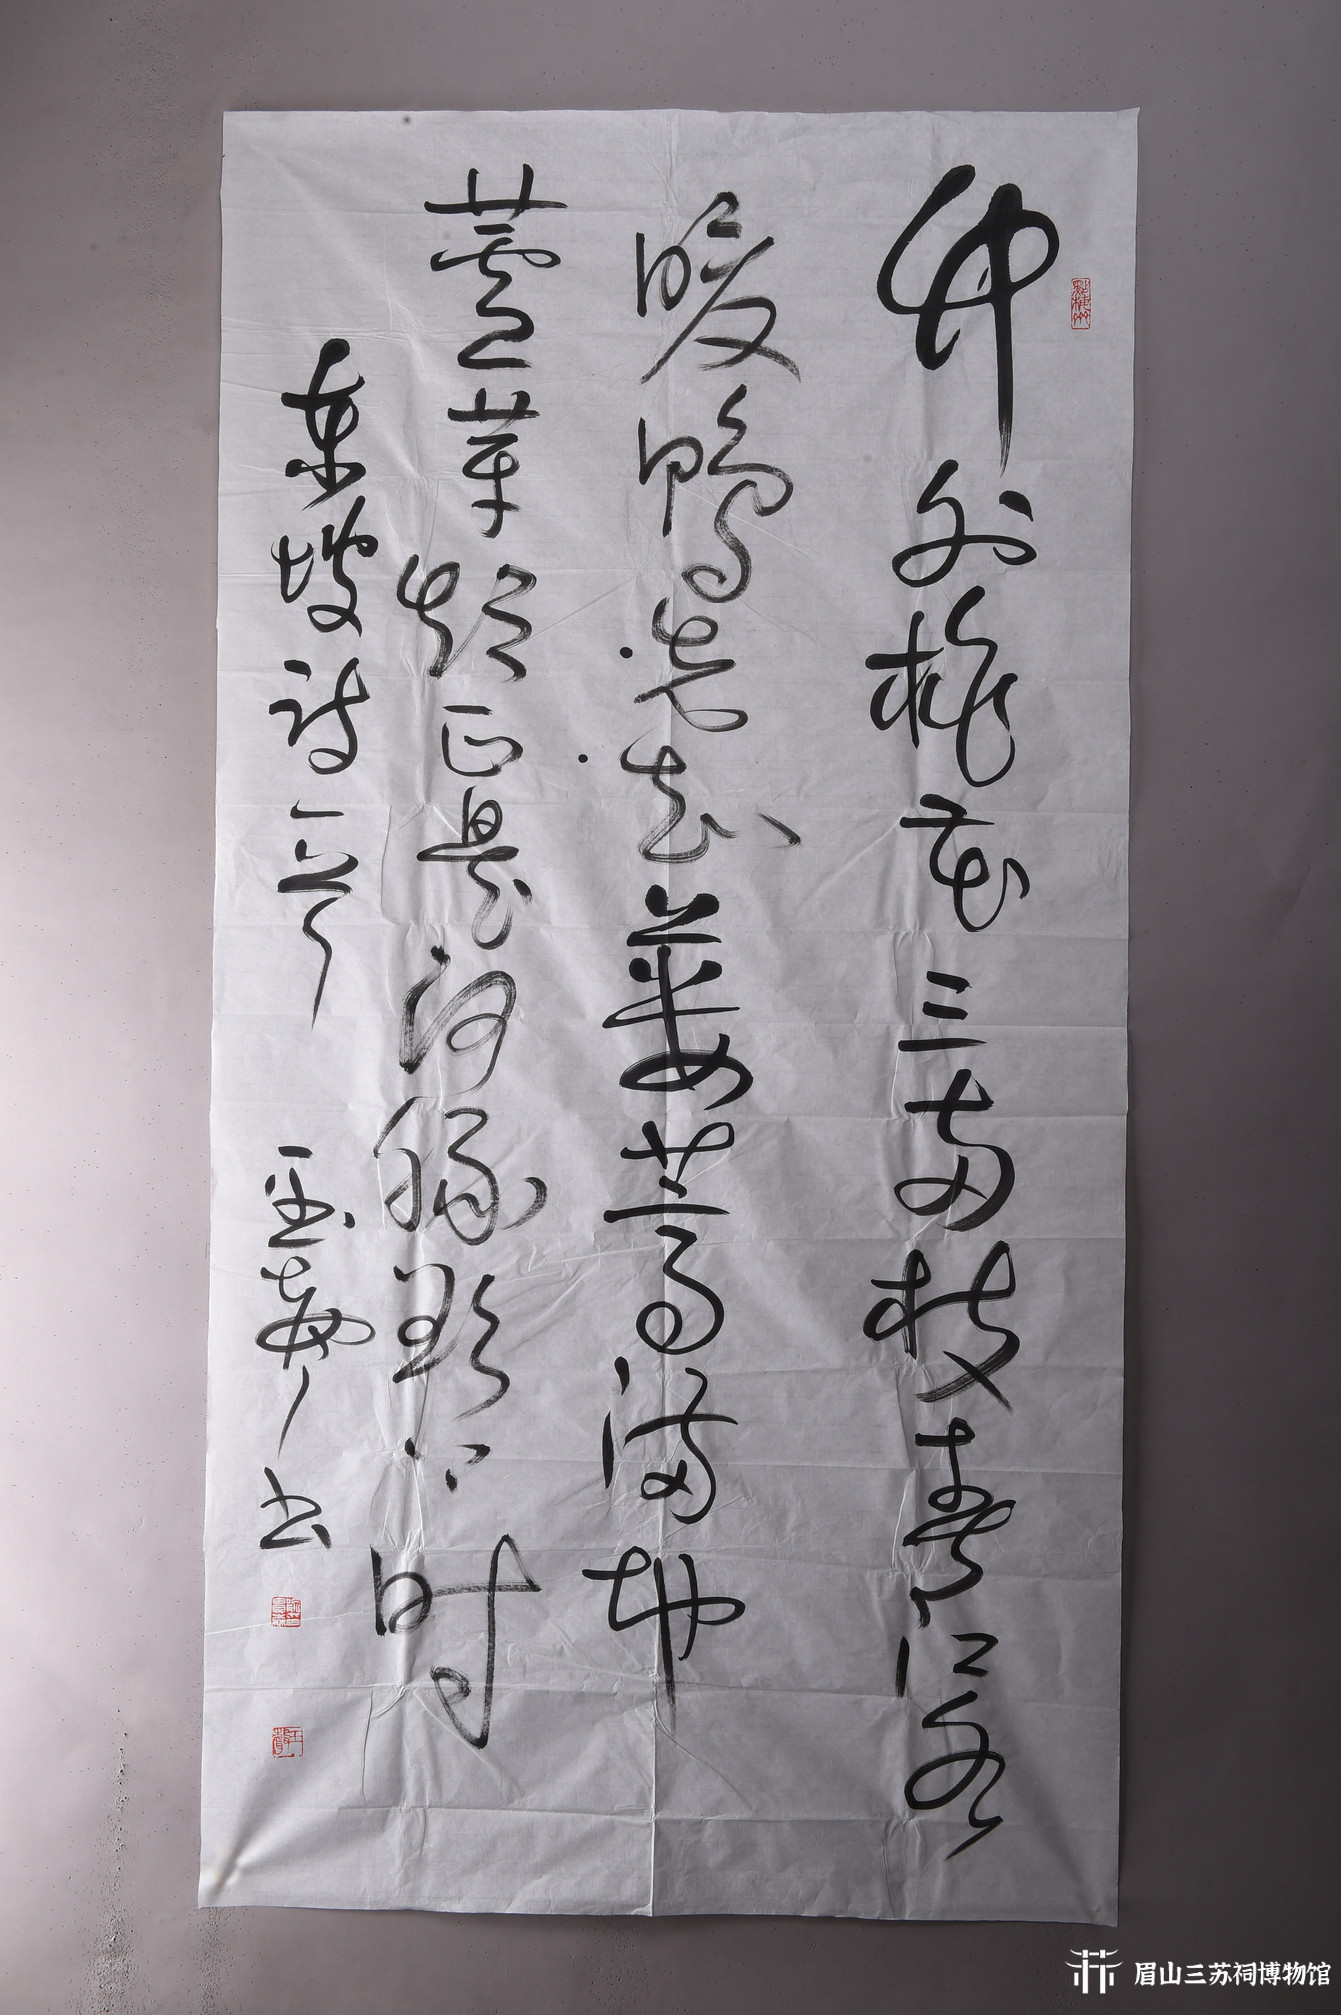 竹外桃花三两枝春江水
暖鸭先知蒌蒿满地
蘆芽短正是河豚欲上时
東坡诗一首 书
眉山三苏祠博物馆